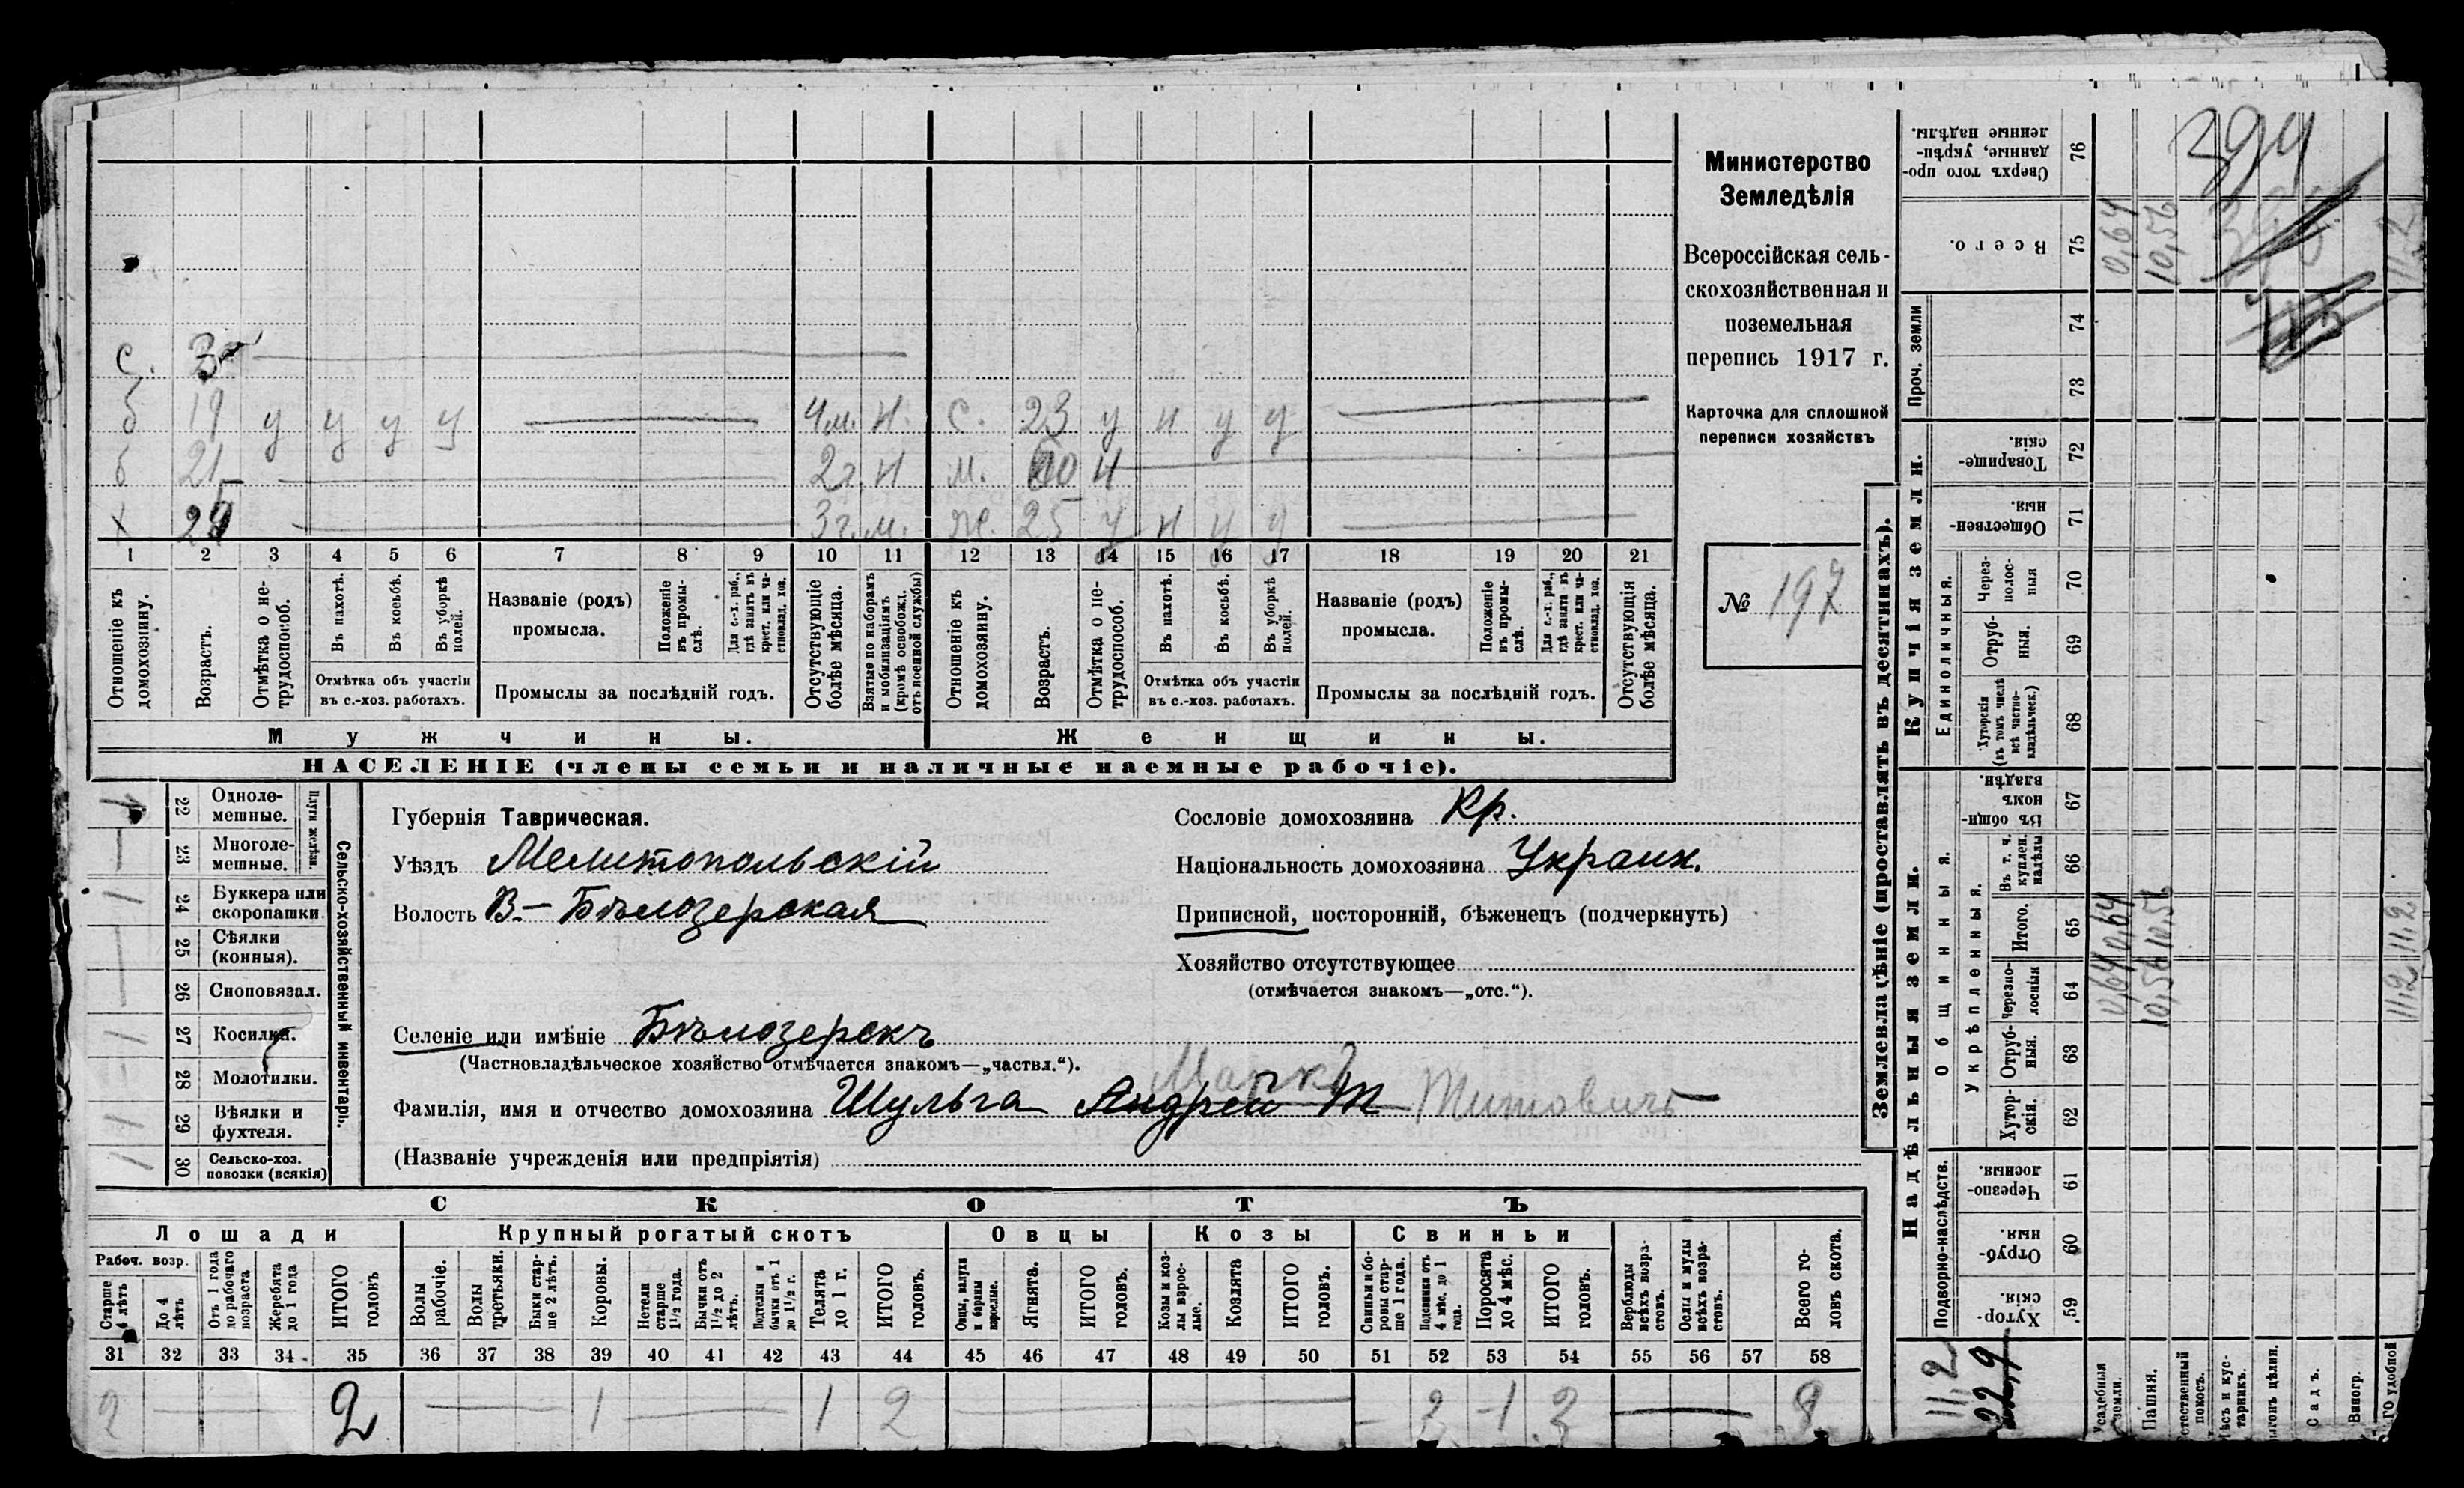 Министерство
Земледѣлія
Всероссійская сель-
скохозяйственная и
поземельная
перепись 1917 г.
Карточка для сплошной
переписи хозяйствъ
№ 197
с. 3
б 19 у у у у — 4м. н. с. 23 у н у у —
б 21 — 2г. н м. 60 н —
х — 3г. м. ж. 25 у н у у —
1 2 3 4 5 6 7 8 9 10 11 12 13 14 15 16 17 18 19 20 21
Отношеніе къ домохозяину.
Возрастъ.
Отмѣтка о не-трудоспособ.
Въ пахотѣ.
Въ косьбѣ.
Въ уборкѣ полей.
Отмѣтка объ участіи въ с.-хоз. работахъ.
Названіе (родъ) промысла.
Положеніе въ промы-слѣ.
Для с.-х. раб., гдѣ занятъ въ крест. или ча-стновлад. хоз.
Промыслы за послѣдній годъ.
Отсутствующіе болѣе мѣсяца.
Взятые по наборамъ и мобилизаціямъ (кромѣ освобожд. отъ военной службы)
Отношеніе къ домохозяину.
Возрастъ.
Отмѣтка о не-трудоспособ.
Въ пахотѣ.
Въ косьбѣ.
Въ уборкѣ полей.
Отмѣтка объ участіи въ с.-хоз. работахъ.
Названіе (родъ) промысла.
Положеніе въ промы-слѣ.
Для с.-х. раб., гдѣ занята въ крест. или ча-стновлад. хоз.
Промыслы за послѣдній годъ.
Отсутствующія болѣе мѣсяца.
Мужчины. Женщины.
НАСЕЛЕНІЕ (члены семьи и наличные наемные рабочіе).
Сельско-хозяйственный инвентарь.
Плуги желѣзн.
22 Одноле-мешные.
23 Многоле-мешные.
24 Буккера или скоропашки.
25 Сѣялки (конныя).
26 Сноповязал.
27 Косилки.
28 Молотилки.
29 Вѣялки и фухтеля.
30 Сельско-хоз. повозки (всякія)
Губернія Таврическая.
Уѣздъ Мелитопольскій
Волость В.-Бѣлозерская
Селеніе или имѣніе Бѣлозерскъ
(Частновладѣльческое хозяйство отмѣчается знакомъ—„частвл.“).
Фамилія, имя и отчество домохозяина Шульга Андрей Т Титовичъ
(Названіе учрежденія или предпріятія)
Сословіе домохозяина Кр.
Національность домохозяина Украин.
Приписной, посторонній, бѣженецъ (подчеркнуть)
Хозяйство отсутствующее
(отмѣчается знакомъ—„отс.“).
СКОТЪ
Лошади Крупный рогатый скотъ Овцы Козы Свиньи
Рабоч. возр.
Старше 4 лѣтъ
До 4 лѣтъ
Отъ 1 года до рабочаго возраста
Жеребята до 1 года
ИТОГО головъ
Волы рабочіе.
Волы третьяки.
Быки стар-ше 2 лѣтъ.
Коровы.
Нетели старше 1½ года.
Бычки отъ 1½ до 2 лѣтъ.
Подтелки и бычки отъ 1 до 1½ г.
Телята до 1 г.
ИТОГО головъ.
Овцы, валухи и бараны взрослые.
Ягнята.
ИТОГО головъ.
Козы и коз-лы взрос-лые.
Козлята
ИТОГО головъ.
Свиньи и бо-ровы стар-ше 1 года.
Подсвинки отъ 4 мѣс. до 1 года.
Поросята до 4 мѣс.
ИТОГО головъ.
Верблюды всѣхъ возра-стовъ.
Ослы и мулы всѣхъ возра-стовъ.
Всего го-ловъ скота.
31 32 33 34 35 36 37 38 39 40 41 42 43 44 45 46 47 48 49 50 51 52 53 54 55 56 57 58
2 — 2 — 1 — 1 2 — — 2 1 3 —
Землевладѣніе (проставлять въ десятинахъ).
Надѣльныя земли. Купчія земли.
Подворно-наслѣдств.
Общинныя.
Укрѣпленныя.
Единоличныя.
Проч. земли
59 Хутор-скія.
60 Отруб-ныя.
61 Черезпо-лосныя.
62 Хутор-скія.
63 Отруб-ныя.
64 Черезпо-лосныя
65 Итого.
66 Въ т. ч. куплен. надѣлы
67 Въ общин-номъ владѣн.
68 Хуторскія (въ томъ числѣ всѣ частно-владѣльческ.)
69 Отруб-ныя.
70 Через-полос-ныя
71 Обществен-ныя
72 Товарище-скія.
73
74
75 Всего.
76 Сверхъ того про-данные, укрѣп-ленные надѣлы.
Усадебныя земли. 0,64 0,64 0,64
Пашня. 10,56 10,56 10,56
Естественный покосъ.
Лѣсъ и кус-тарникъ.
Выгонъ цѣлин.
Садъ.
Виногр.
11,2 11,2 11,2
11,2
22,9
394